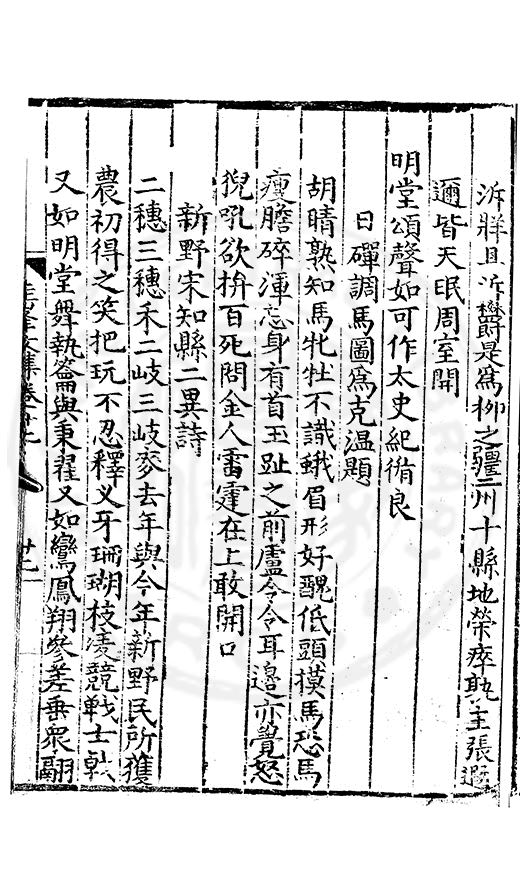 泝牂且泝欝是爲柳之疆二州十縣地榮瘁孰主張遐
邇皆天眠周室開
明堂頌聲如可作太史紀循良
日磾調馬圖爲克温題
胡睛熟知馬牝牡不識蛾眉形好醜低頭摸馬恐馬
瘦膽碎渾忘身有首玉趾之前盧令令耳邉亦覺怒
猊吼欲拚百死問金人雷霆在上敢開口
新野宋知縣二異詩
二穗三穗禾二岐三岐麥去年與今年新野民所獲
農初得之笑把玩不忍釋义牙珊瑚枝淩競戰士戟
又如明堂舞執籥與秉翟又如鸞鳳翔參差垂衆翮
圭峯文集卷